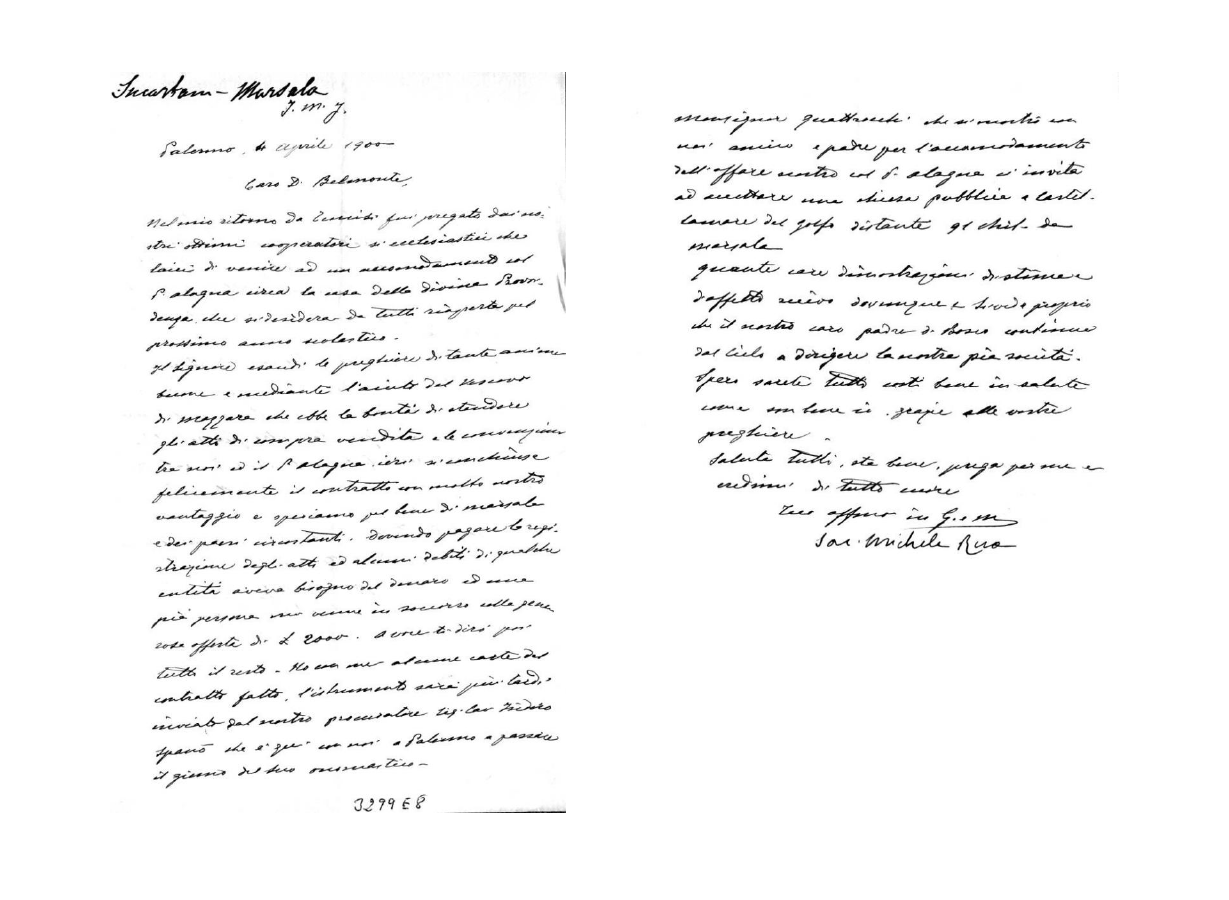 Incartam – Marsala
J. M. J.
Palermo, 4 Aprile 1900
Caro D. Belmonte,
Nel mio ritorno da Tunisi fui pregato dai no-
stri ottimi cooperatori sì ecclesiastici che
laici di venire ad un accomodamento col
P. Alagna circa la casa della divina Provvi-
denza che si desidera da tutti riaperta pel
prossimo anno scolastico.
Il Signore esaudì le preghiere di tante anime
buone e mediante l'aiuto del Vescovo
di Mazzara che ebbe la bontà di stendere
gli atti di compra vendita e le convenzioni
tra noi ed il P. Alagna ieri si conchiuse
felicemente il contratto con molto nostro
vantaggio e speriamo pel bene di Marsala
e dei paesi circostanti. Dovendo pagare la regi-
strazione degli atti ed alcuni debiti di qualche
entità aveva bisogno del denaro ed una
pia persona mi venne in soccorso colla gene
rosa offerta di £ 2000. A voce ti dirò poi
tutto il resto – Ho con me alcune carte del
contratto fatto, l'istrumento sarà più tardi
inviato dal nostro procuratore Sig. Cav Isidoro
Spanò che è qui con noi a Palermo a passare
il giorno del suo onomastico –
3299 E8
Monsignor Quattrocchi che si mostrò con
noi amico e padre per l'accomodamento
dell'affare nostro col P. Alagna ci invita
ad accettare una chiesa pubblica a Castel-
lamare del golfo distante 91 chil. da
Marsala
Quante care dimostrazioni di stima e
d'affetto ricevo dovunque e si vede proprio
che il nostro caro padre D. Bosco continua
dal Cielo a dirigere la nostra pia società.
Spero sarete tutti costì bene in salute
come sto bene io, grazie alle vostre
preghiere.
Saluta tutti, sta bene, prega per me e
credimi di tutto cuore
Tuo affmo in G. e M
Sac. Michele Rua